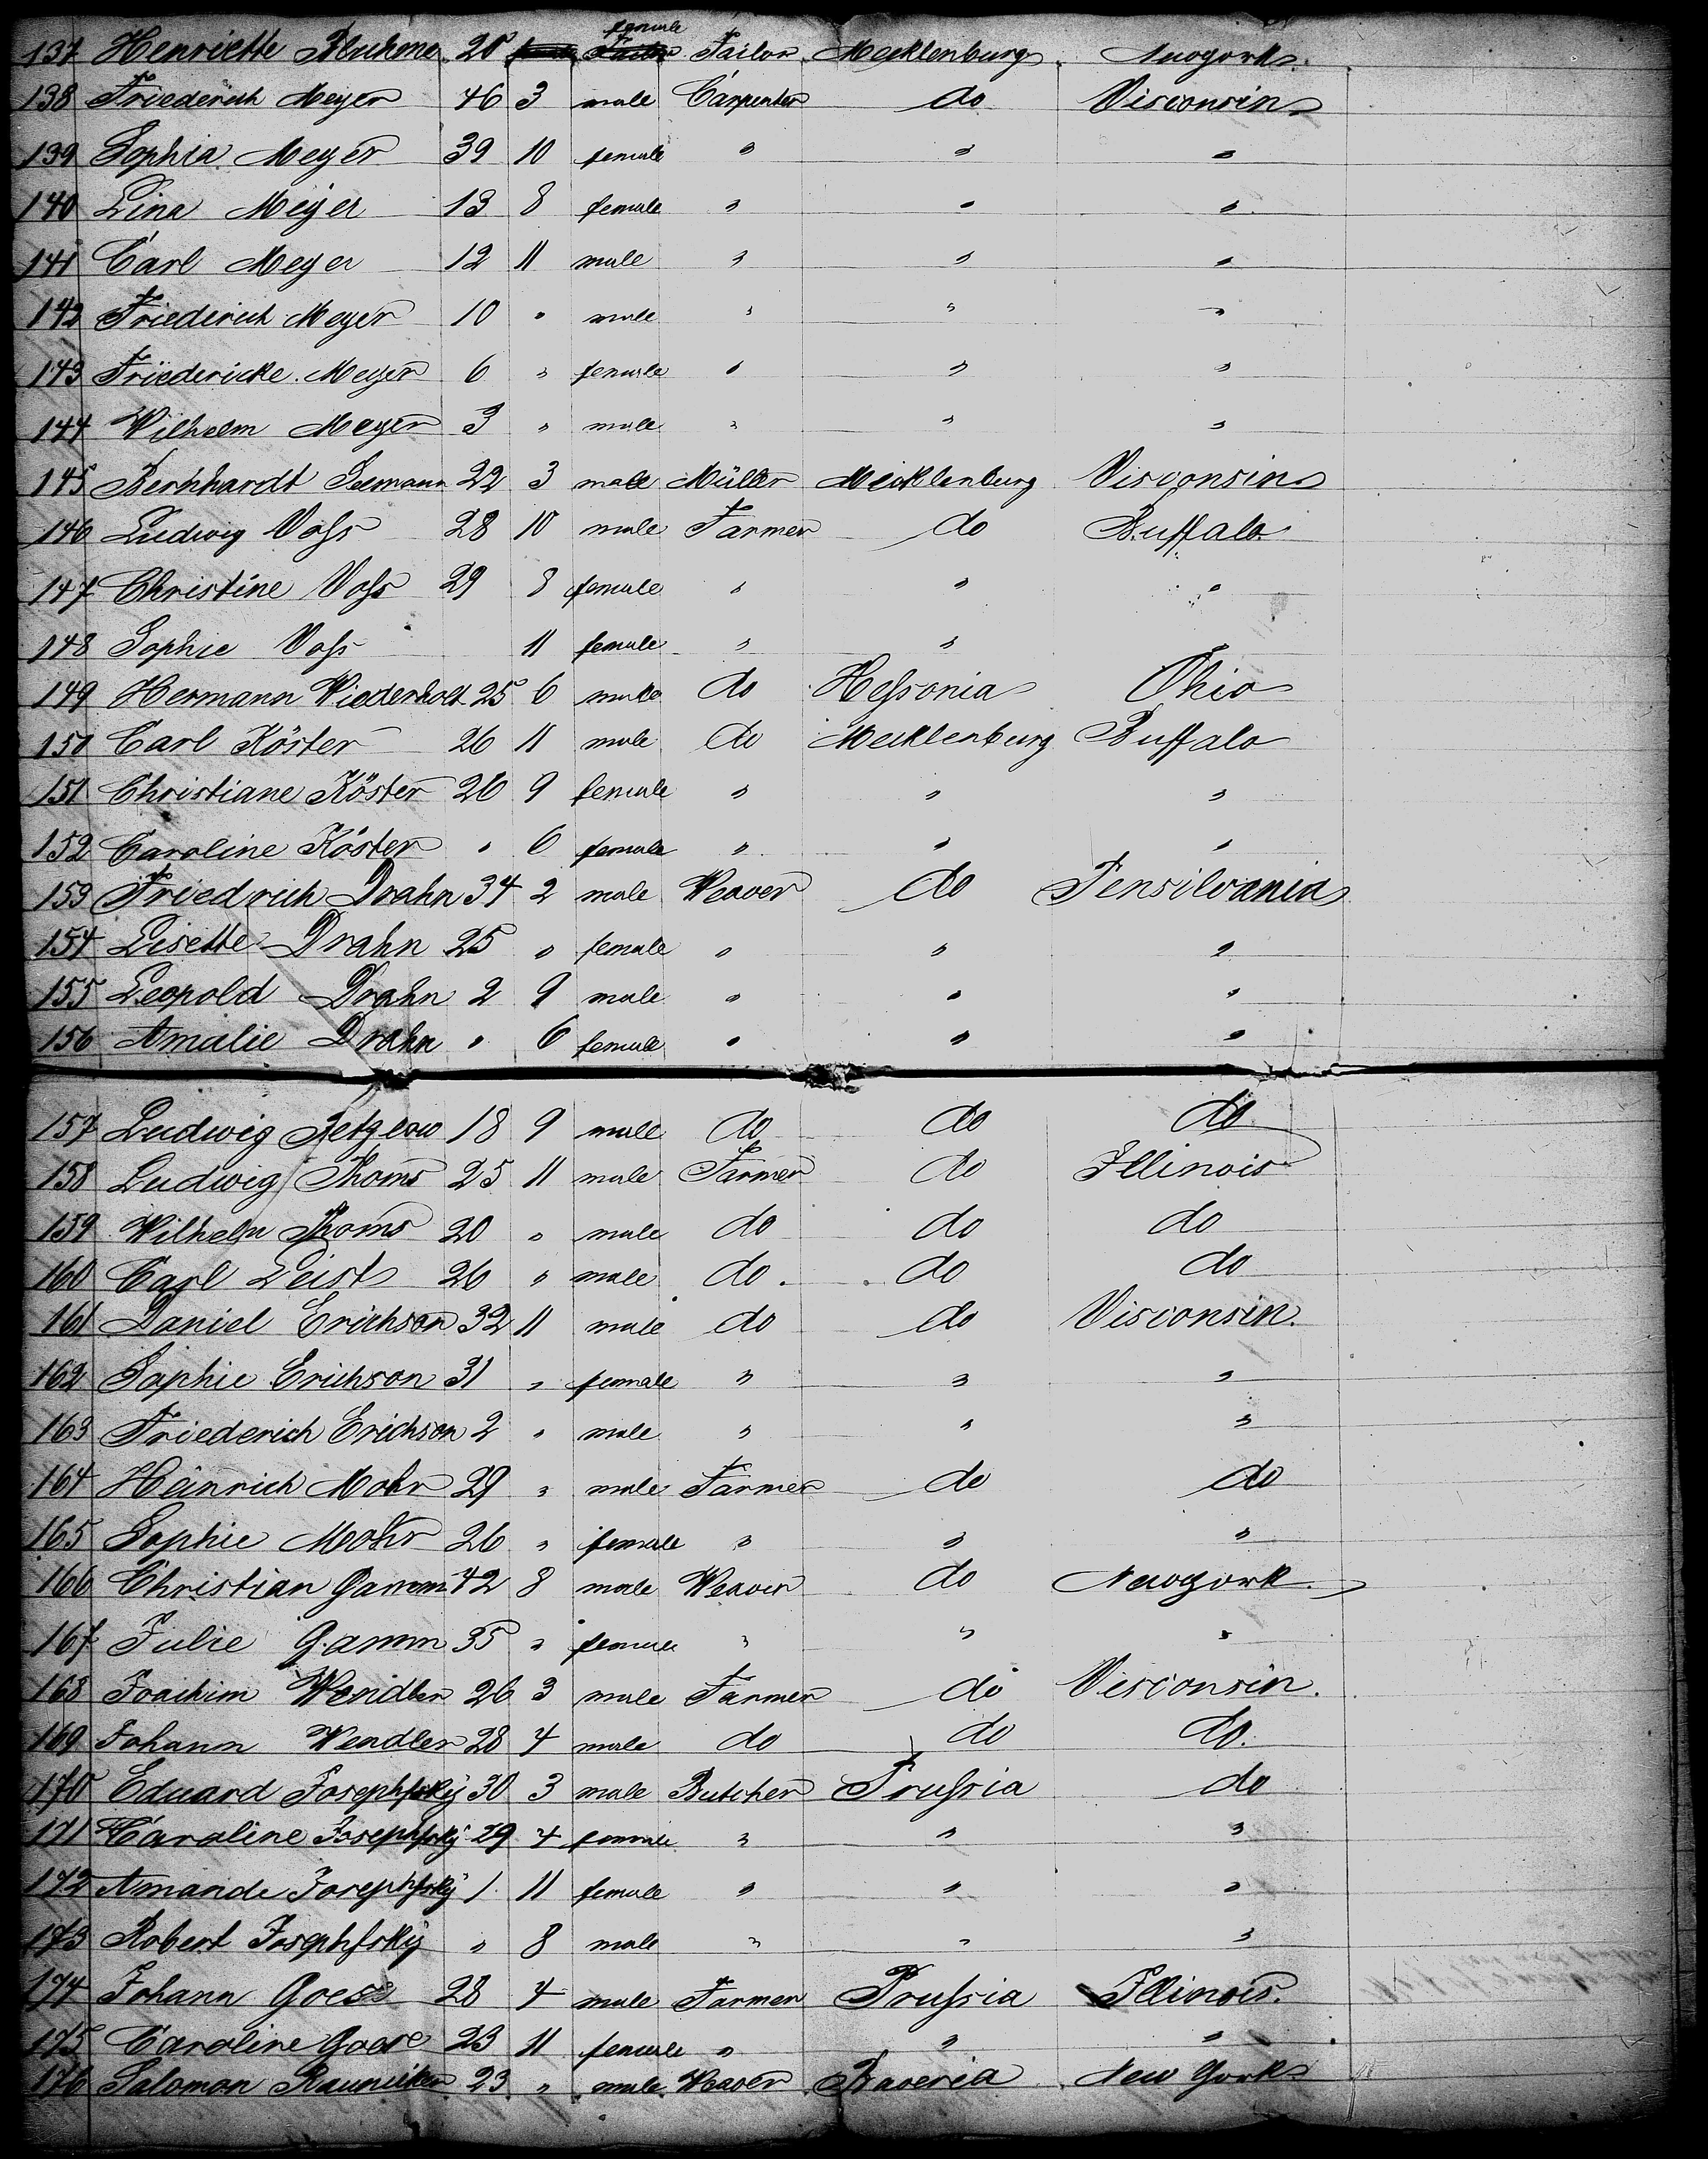 female
137 Henriette Bluhme 20 Tailor Mecklenburg Newyork
138 Friederich Meyer 46 3 male Carpenter do Visconsin
139 Sophia Meyer 39 10 female " " "
140 Lina Meyer 13 8 female " " "
141 Carl Meyer 12 11 male " " "
142 Friederich Meyer 10 " male " " "
143 Friedericke Meyer 6 " female " " "
144 Wilhelm Meyer 3 " male " " "
145 Bernhardt Seemann 22 3 male Müller Mecklenburg Visconsin
146 Ludwig Voſs 28 10 male Farmer do Buffalo
147 Christine Voſs 29 8 female " " "
148 Sophie Voſs 11 female " "
149 Hermann Wiederholt 25 6 male do Heſsonia Ohio
150 Carl Köster 26 11 male do Mecklenburg Buffalo
151 Christiane Köster 26 9 female " " "
152 Caroline Köster " 6 female " " "
153 Friedrich Drahn 34 2 male Weaver do Pensilvania
154 Lisette Drahn 25 " female " " "
155 Leopold Drahn 2 9 male " " "
156 Amalie Drahn " 6 female " " "
157 Ludwig 18 9 male do do do
158 Ludwig Thoms 25 11 male Farmer do Illinois
159 Wilhelm Thoms 20 " male do do do
160 Carl Leist 26 " male do do do
161 Daniel Erichson 32 11 male do do Visconsin.
162 Sophie Erichson 31 " female " " "
163 Friederich Erichson 2 " male " " "
164 Heinrich Mohr 29 " male Farmer do do
165 Sophie Mohr 26 " female " " "
166 Christian Gamm 42 8 male Weaver do Newyork
167 Julie Gamm 35 " female " " "
168 Joachim Wendler 26 3 male Farmer do Visconsin.
169 Johann Wendler 28 4 male do do do.
170 Eduard Josephſsky 30 3 male Butcher Pruſsia do
171 Caroline Josephſsky 29 4 female " " "
172 Amande Josephſsky 1 11 female " " "
173 Robert Josephſsky " 8 male " " "
174 Johann Goese 28 4 male Farmer Pruſsia Illinois.
175 Caroline Goese 23 11 female " " "
176 Salomon 23 " male Weaver Baveria New York